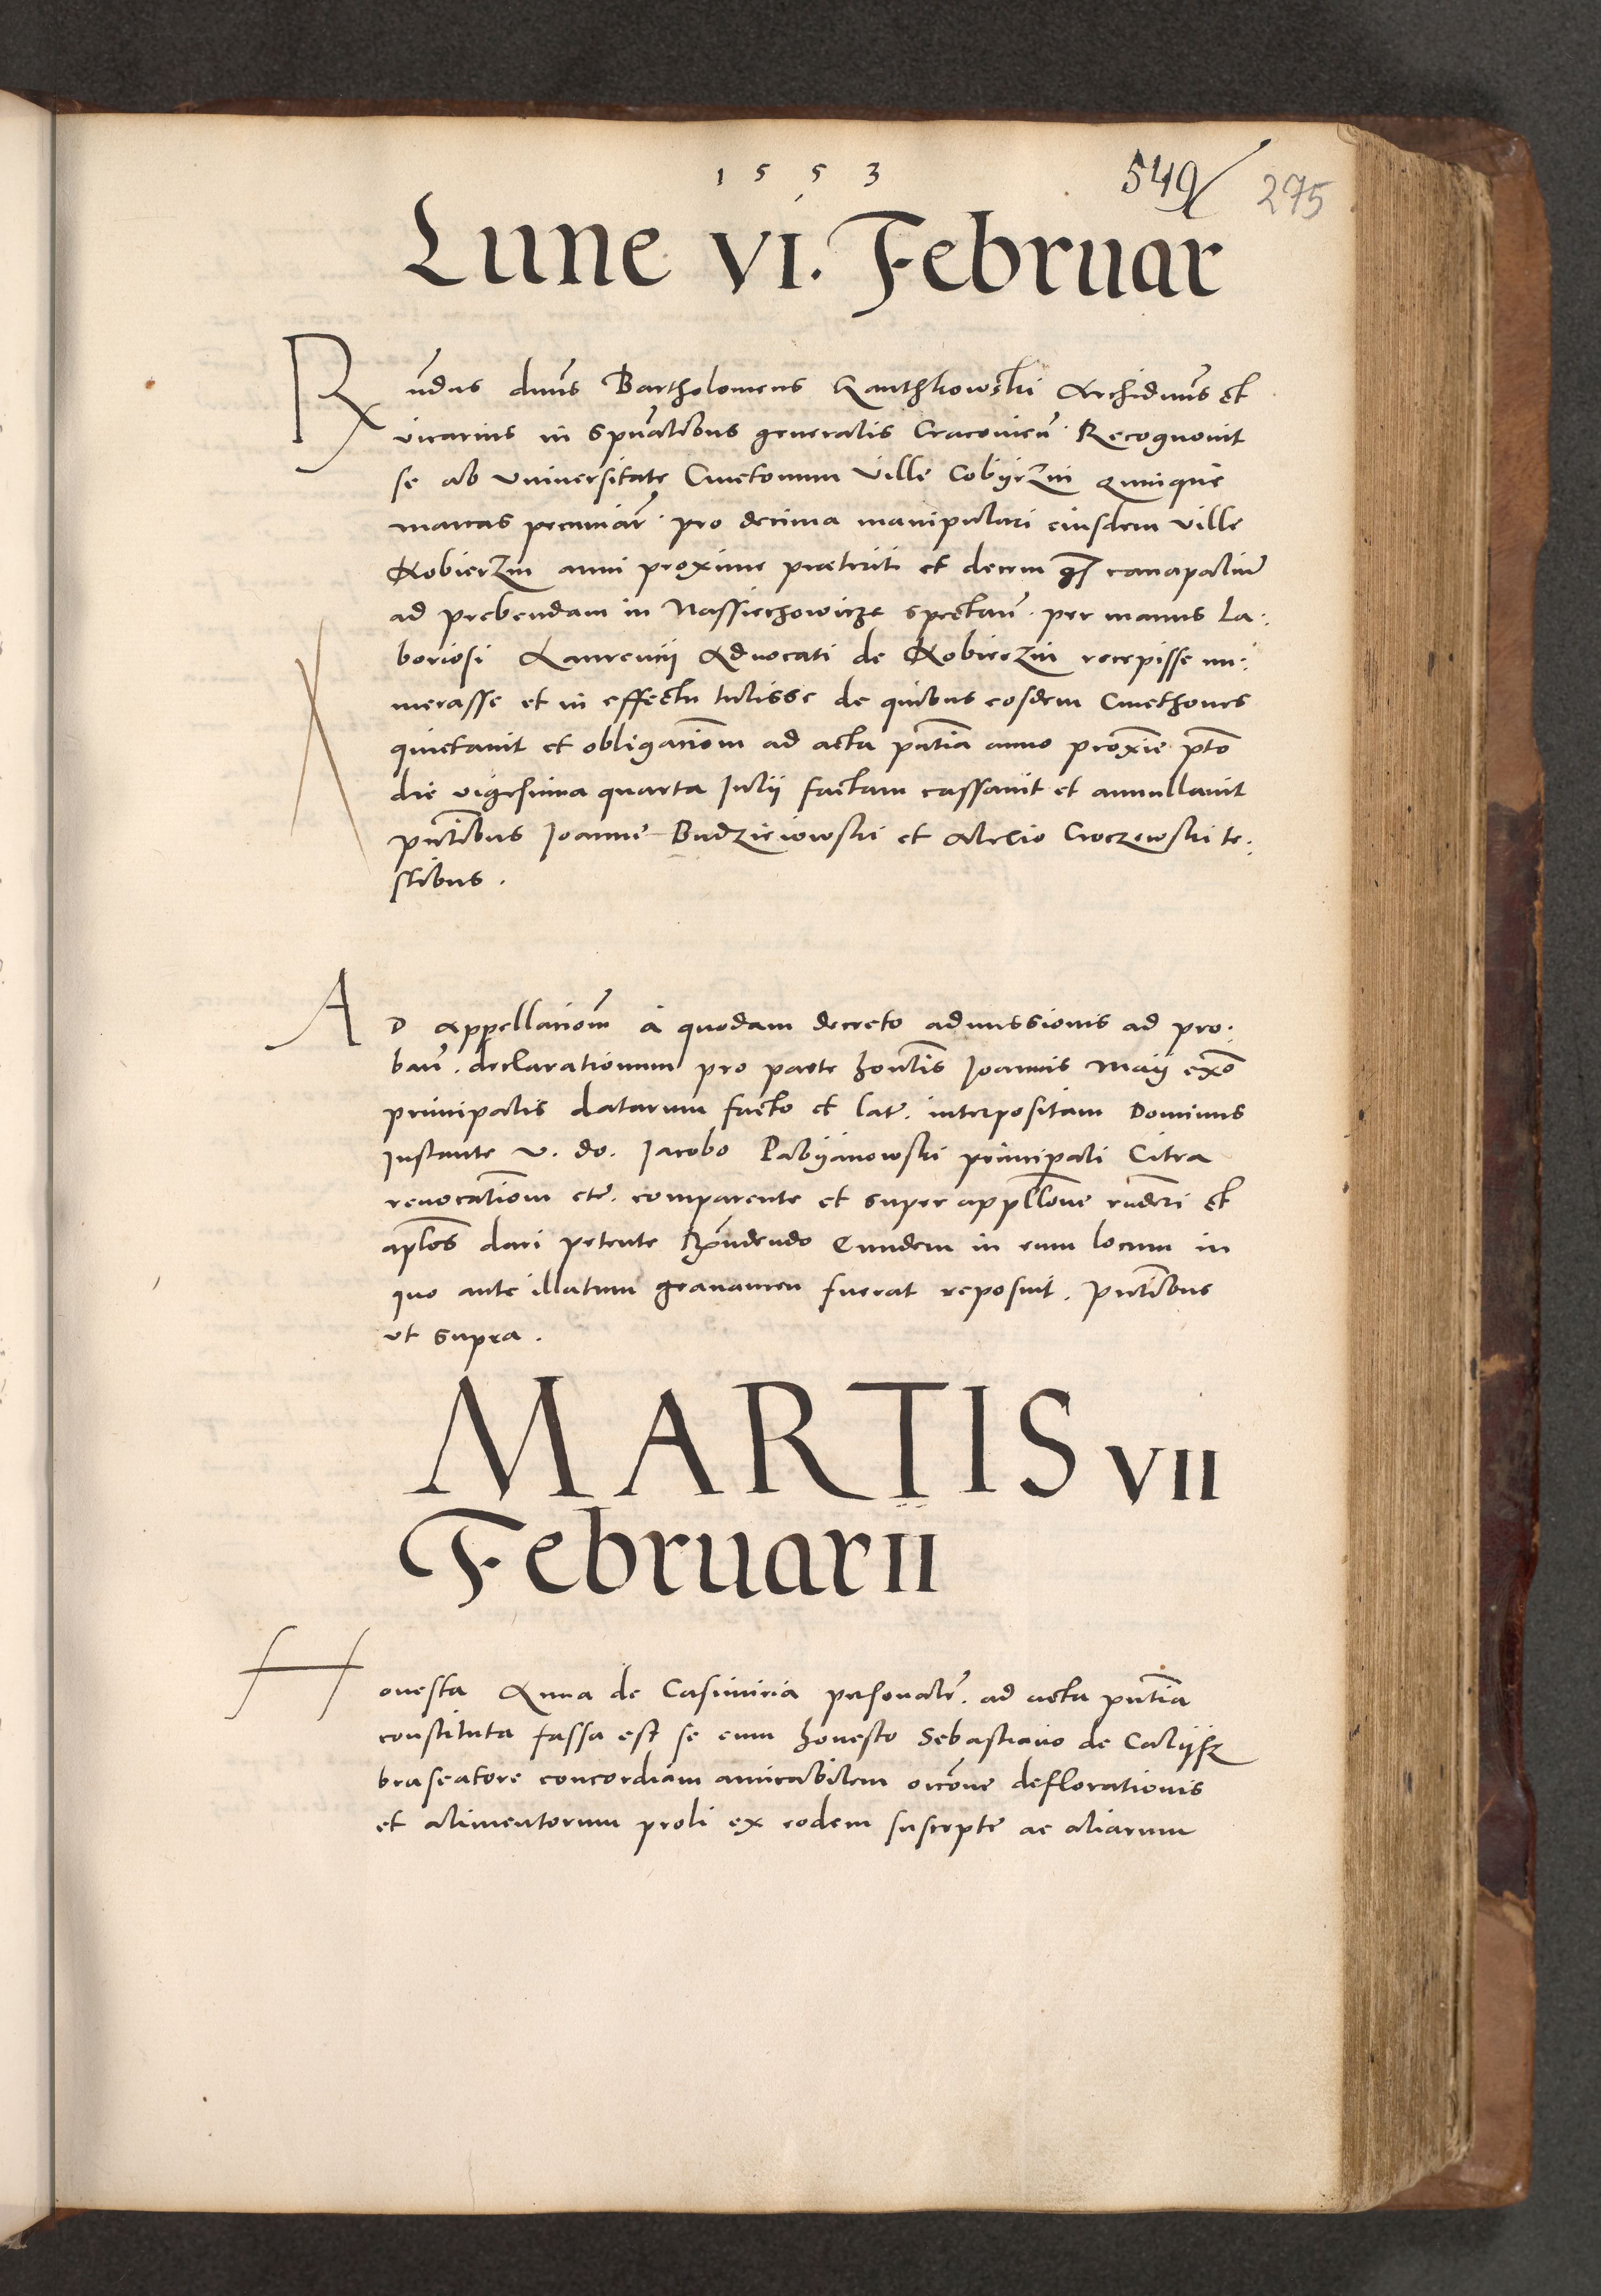 1553
549 275
Lune VI. Februar
Rṇdus dnns Bartholomeus Ganthkowski Archidnus et
vicarius in spūalibus generalis Cracovień. Recognovit
se ab universitate Cmetonum ville Cobijrzin quinque
marcas pecuniar̄. pro decima manipulari eiusdem ville
Kobierzin anni proxime praeteriti et decem gr canapaliū
ad prebendam in Nassiechowicze spectan̄. per manus La:
boriosi Laurencij Advocati de Kobierzin recepisse nu:
merasse et in effectu tulisse de quibus eosdem Cmethones
quietavit et obligacīonem ad acta pn̄tia anno proxīe pt̄o
die vigesima quarta Julii factam cassavit et annullavit
pn̄tibus Joanne Budzieiowski et Alexio Croczewski te:
stibus.
AD appellacionem̄ à quodam decreto admissionis ad pro:
ban̄. declarationum pro parte hon̄tis Joannis Maij ex̄o
principalis datarum facto et later̄. interpositam Dominus
Instante v. do. Jacobo Pabijanowski principali Citra
revocatīonem eter̄. comparente et super appllōne rn̄deri et
aplōs dari petente Rn̄dendo Eundem in eum locum in
quo ante illatum gravamen fuerat reposuit. Pn̄tibus
ut supra.
MARTIS VII
Februarii
Honesta Anna de Casimiria personaler̄. ad acta pn̄tia
constituta fassa est se cum honesto Sebastiano de Calijsz
braseatore concordiam amicabilem occōne deflorationis
et alimentorum proli ex eodem suscepte ac aliarum